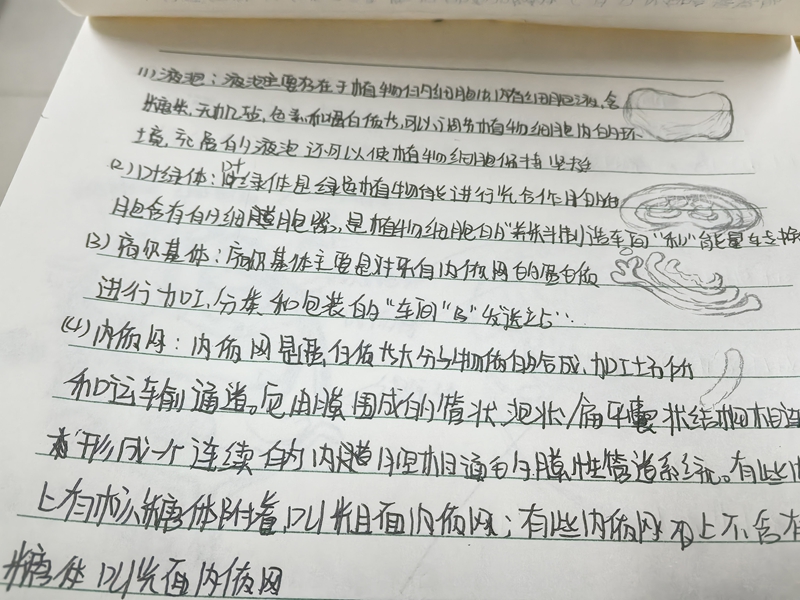 (1)液泡：液泡主要存在于植物的细胞内,内有细胞液,含
糖类,无机盐,色素和蛋白质等,可以调节植物细胞内的环
境,充盈的液泡还可以使植物细胞保持坚挺
(2)叶绿体：叶绿体是绿色植物能进行光合作用的细
胞含有的细胞器。是植物细胞的“养料制造车间”和“能量转换
(3)高尔基体：高尔基体主要是对来自内质网的蛋白质
进行加工、分类和包装的“车间”及“发送站”.
(4)内质网：内质网是蛋白质等大分子物质的合成、加工场所
和运输通道。它由膜围成的管状、泡状/扁平囊状结构相连
形成一个连续的内腔相通的膜性管道系统。有些内
上有核糖体附着,叫粗面内质网；有些内质网上不含有
糖体叫光面内质网